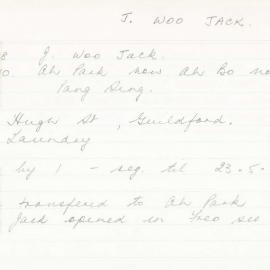 J. WOO JACK.
8 J. Woo Jack.
0. Ah Park now Ah Bo no
Yang Sing.
Hugh St, Guildford.
Laundry
by 1 - seg. til 23.5.
transferred to Ah Park
Jack opened in Freo see